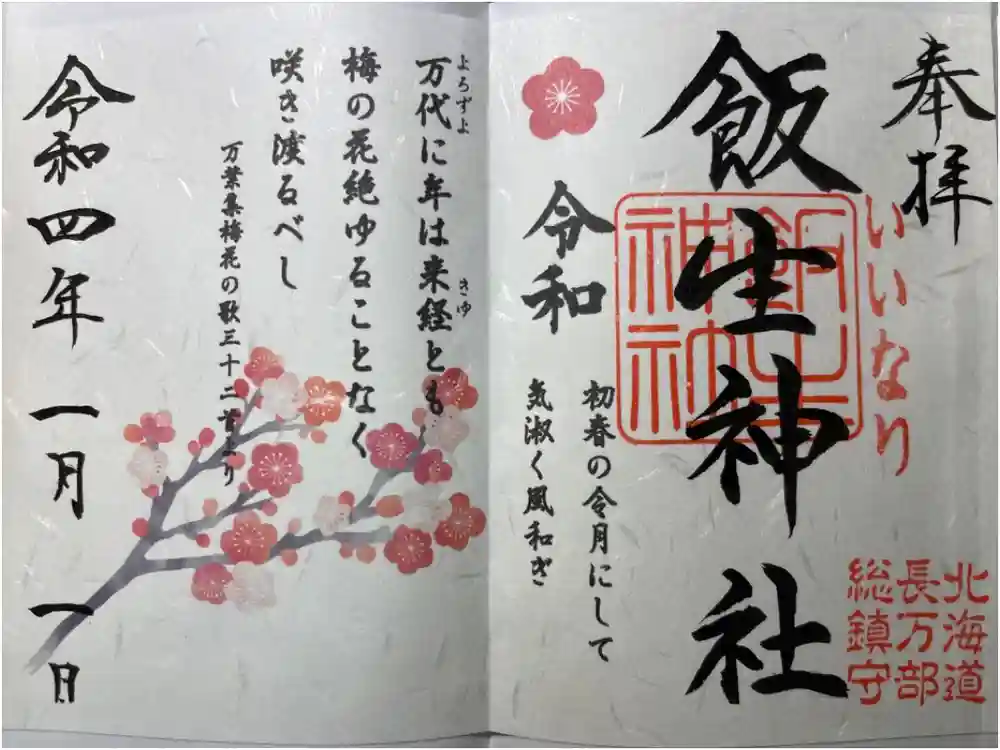 奉拝
いいなり
北海道
長万部
総鎮守
飯生神社
飯生
神社
令和
初春の令月にして
気淑く風和ぎ
よろずよ
きゆ
万代に年は来経とも
梅の花絶ゆることなく
咲き渡るべし
万葉集梅花の歌三十二首より
令和四年一月一日